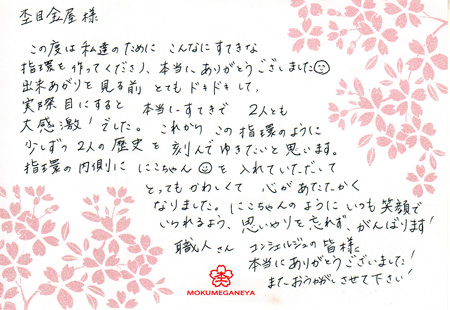 杢目金屋 様
この度は私達のために こんなにすてきな
指環を作ってくださり、本当にありがとうございました☺
出来あがりを見る前 とてもドキドキして、
実際目にすると 本当にすてきで 2人とも
大感激!でした。これから この指環のように
少しずつ 2人の歴史を刻んでゆきたいと思います。
指環の内側に にこちゃん☺を入れていただいて
とってもかわいくて 心があたたかく
なりました。にこちゃんのように いつも笑顔で
いられるよう、思いやりを忘れず、がんばります!
職人さん コンシェルジュの皆様に
本当にありがとうございました!
またおうかがいさせて下さい!
MOKUMEGANEYA